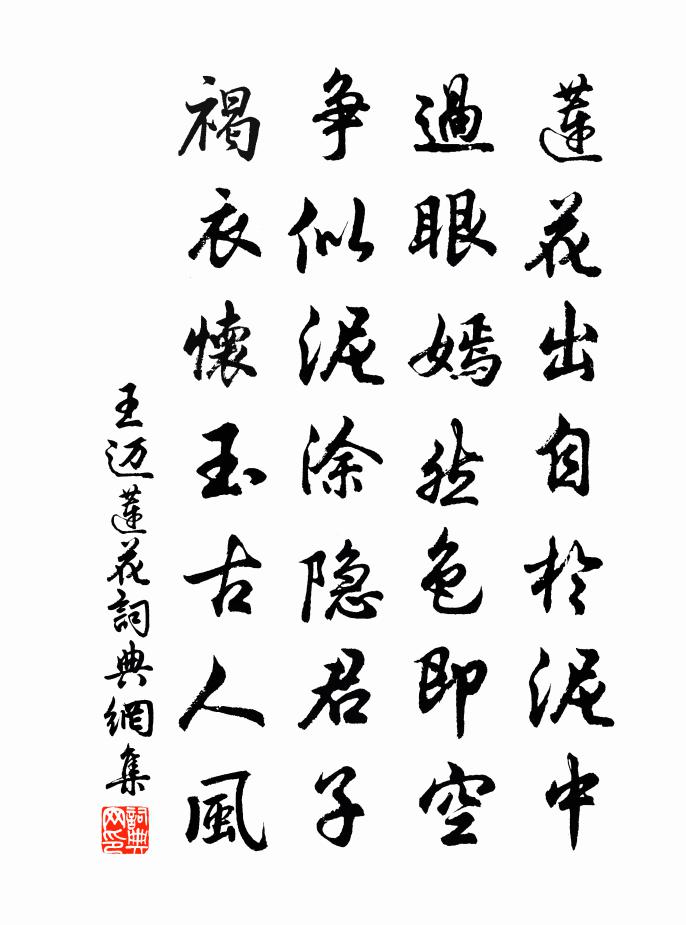 蓮花出自於泥中
過眼嫣然色即空
争似泥涂隐君子
褐衣懷玉古人風
王迈蓮花詞典網集
詞典网印